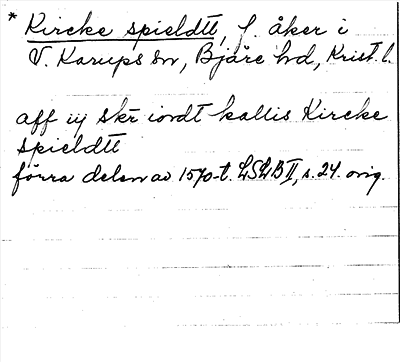 * Kircke spieldtt, f. åker i
V. Karups sn, Bjäre hd, Krist. l.
aff iij skr iordt kallis Kircke
spieldtt
förra delen av 1570-t. LSLB II, s. 24. orig.